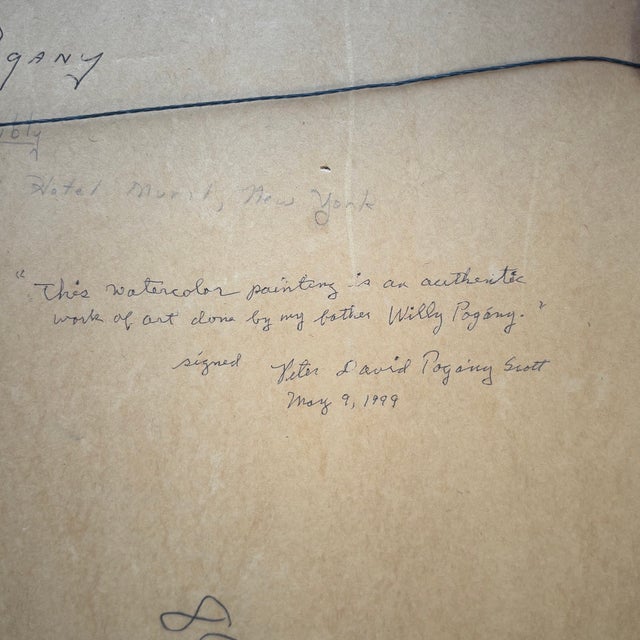 OGANY
Hotel Mural, New York
"This watercolor painting is an authentic
work of art done by my father Willy Pogány."
signed Peter David Pogány Scott
May 9, 1999
8